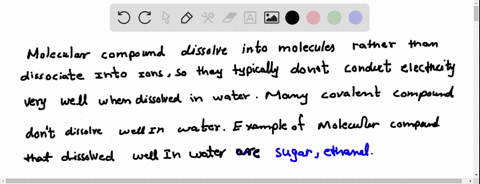 Molecular compound dissolve into molecules rather than
dissociate into ions, so they typically donot conduct electricity
very well when dissolved in water. Many covalent compound
don't dissolve well In water. Example of Molecular compound
that dissolved well In water are sugar, ethanol.